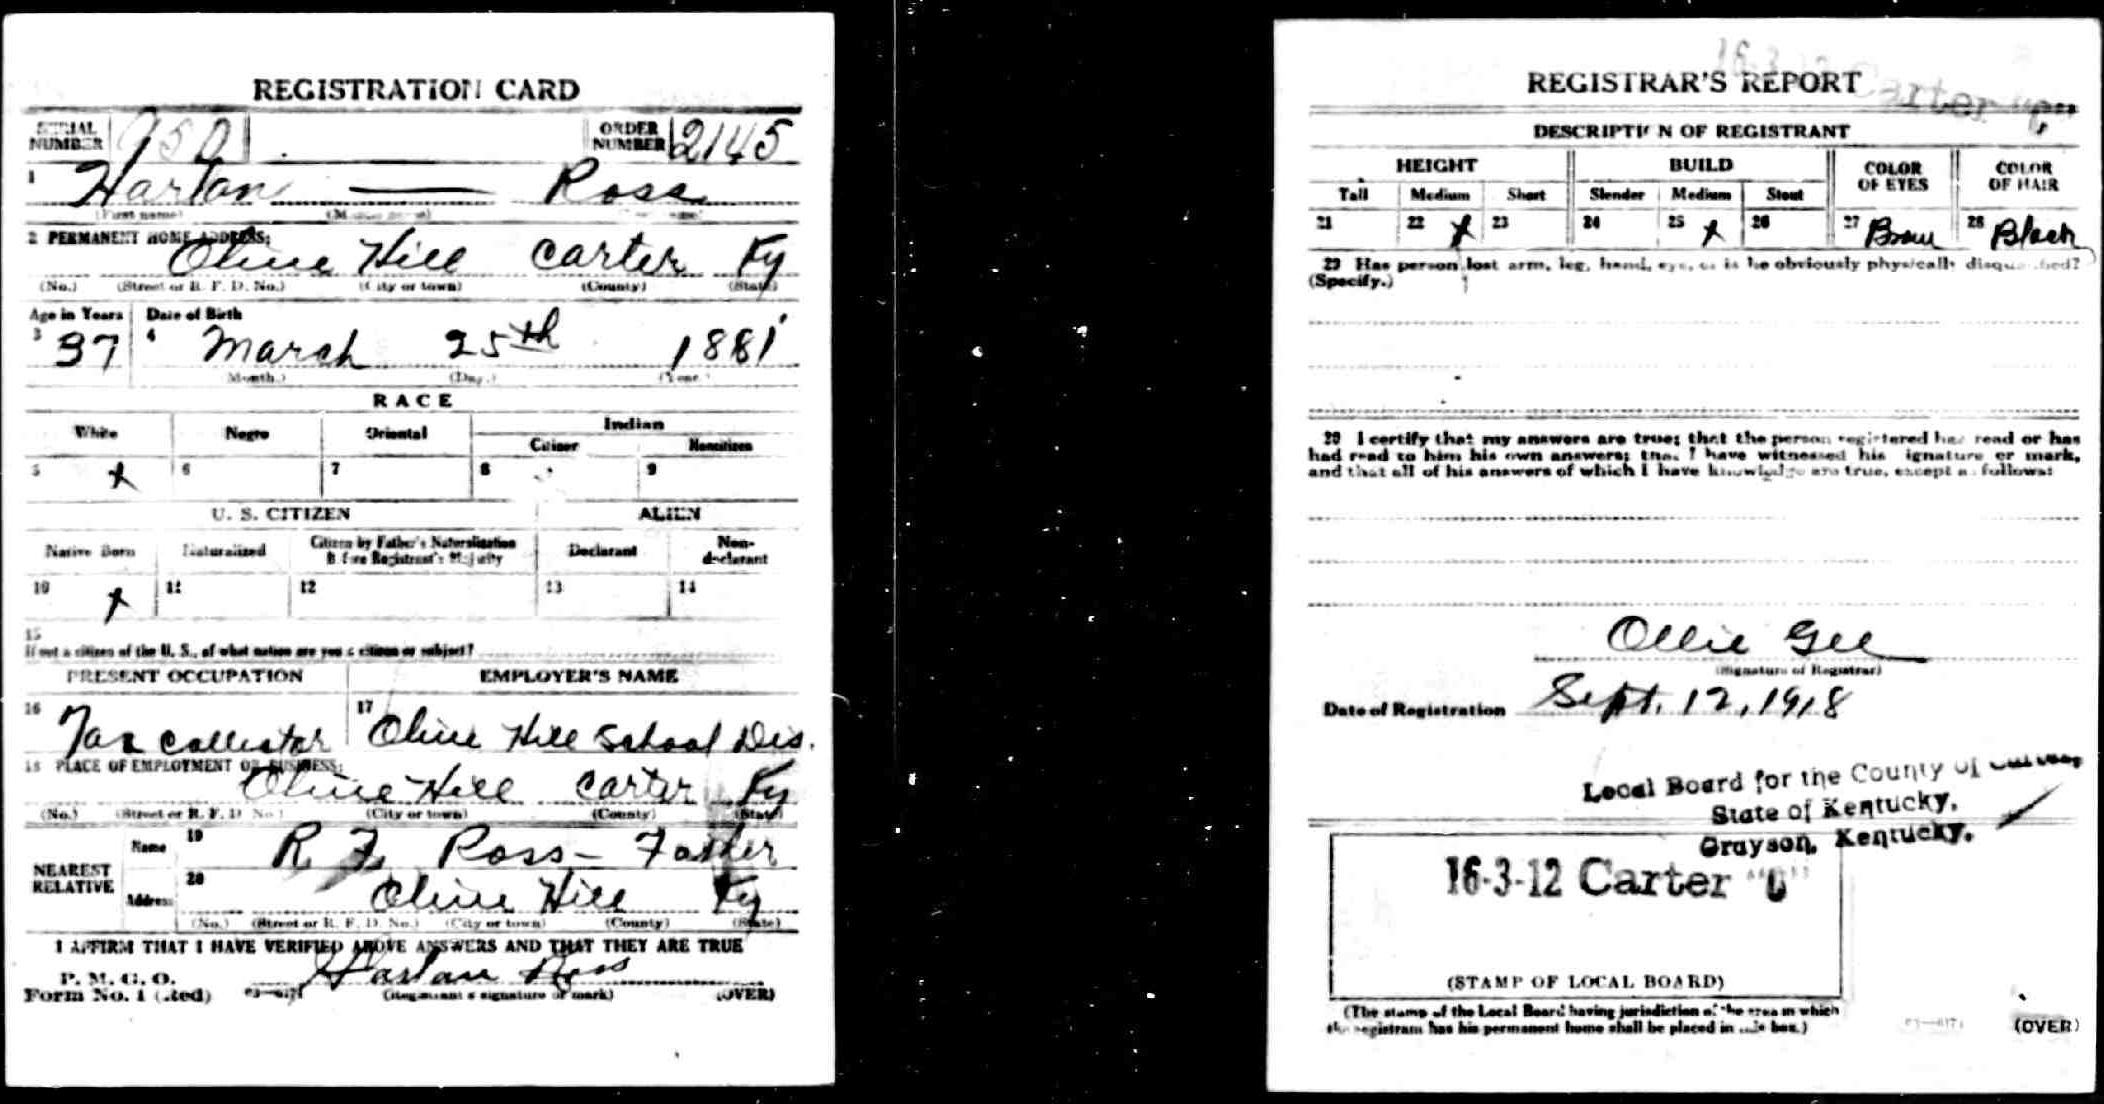 REGISTRATION CARD
SERIAL NUMBER 950 ORDER NUMBER 2145
1 Harlan Ross
(First name) (Middle name)
2 PERMANENT HOME ADDRESS:
Olive Hill Carter Ky
(No.) (Street or R. F. D. No.) (City or town) (County) (State)
Age in Years Date of Birth
3 37 4 March 25th 1881
(Month.) (Day.) (Year.)
RACE
White Negro Oriental Indian
Citizen Noncitizen
5 x 6 7 8 9
U. S. CITIZEN ALIEN
Native Born Naturalized Citizen by Father's Naturalization Before Registrant's Majority Declarant Non-declarant
10 x 11 12 13 14
15
If not a citizen of the U. S., of what nation are you a citizen or subject?
PRESENT OCCUPATION EMPLOYER'S NAME
16 Tax Collector 17 Olive Hill School Dis.
18 PLACE OF EMPLOYMENT OR BUSINESS:
Olive Hill Carter Ky
(No.) (Street or R. F. D. No.) (City or town) (County) (State)
NEAREST RELATIVE
Name 19 R. F. Ross - Father
Address 20 Olive Hill Ky
(No.) (Street or R. F. D. No.) (City or town) (County) (State)
I AFFIRM THAT I HAVE VERIFIED ABOVE ANSWERS AND THAT THEY ARE TRUE
P. M. G. O.
Form No. 1 (Red) Harlan Ross
(Registrant's signature or mark) (OVER)
16-3-12 Carter
REGISTRAR'S REPORT
DESCRIPTION OF REGISTRANT
HEIGHT BUILD COLOR OF EYES COLOR OF HAIR
Tall Medium Short Slender Medium Stout
21 22 x 23 24 25 x 26 27 Brow 28 Black
29 Has person lost arm, leg, hand, eye, or is he obviously physically disqualified?
(Specify.)
30 I certify that my answers are true; that the person registered has read or has
had read to him his own answers; that I have witnessed his signature or mark,
and that all of his answers of which I have knowledge are true, except as follows:
Ollie Gee
(Signature of Registrar)
Date of Registration Sept. 12, 1918
Local Board for the County of Carter,
State of Kentucky,
Grayson, Kentucky.
16-3-12 Carter "C"
(STAMP OF LOCAL BOARD)
(The stamp of the Local Board having jurisdiction of the area in which
the registrant has his permanent home shall be placed in this box.)
(OVER)